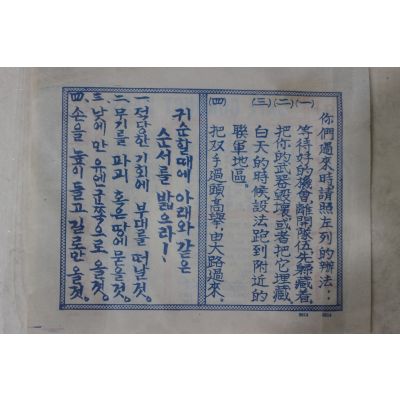 你們過來時,請照左列的辦法:
(一) 等待好的機會,離開隊伍,先躱藏着,
(二) 把你的武器毀壞,或者把它埋藏,
(三) 白天的時候,設法跑到附近的
聯軍地區,
(四) 把双手過頭高舉,由大路過來.
귀순할때에 아래와같은
순서를 밟으라!
一 적당한 기회에 부대를 떠날것.
二 무기를 파괴 혹은 땅에 묻을것.
三 낮에만 유엔군쪽으로 올것.
四 손을 높이 들고 길로만 올것.